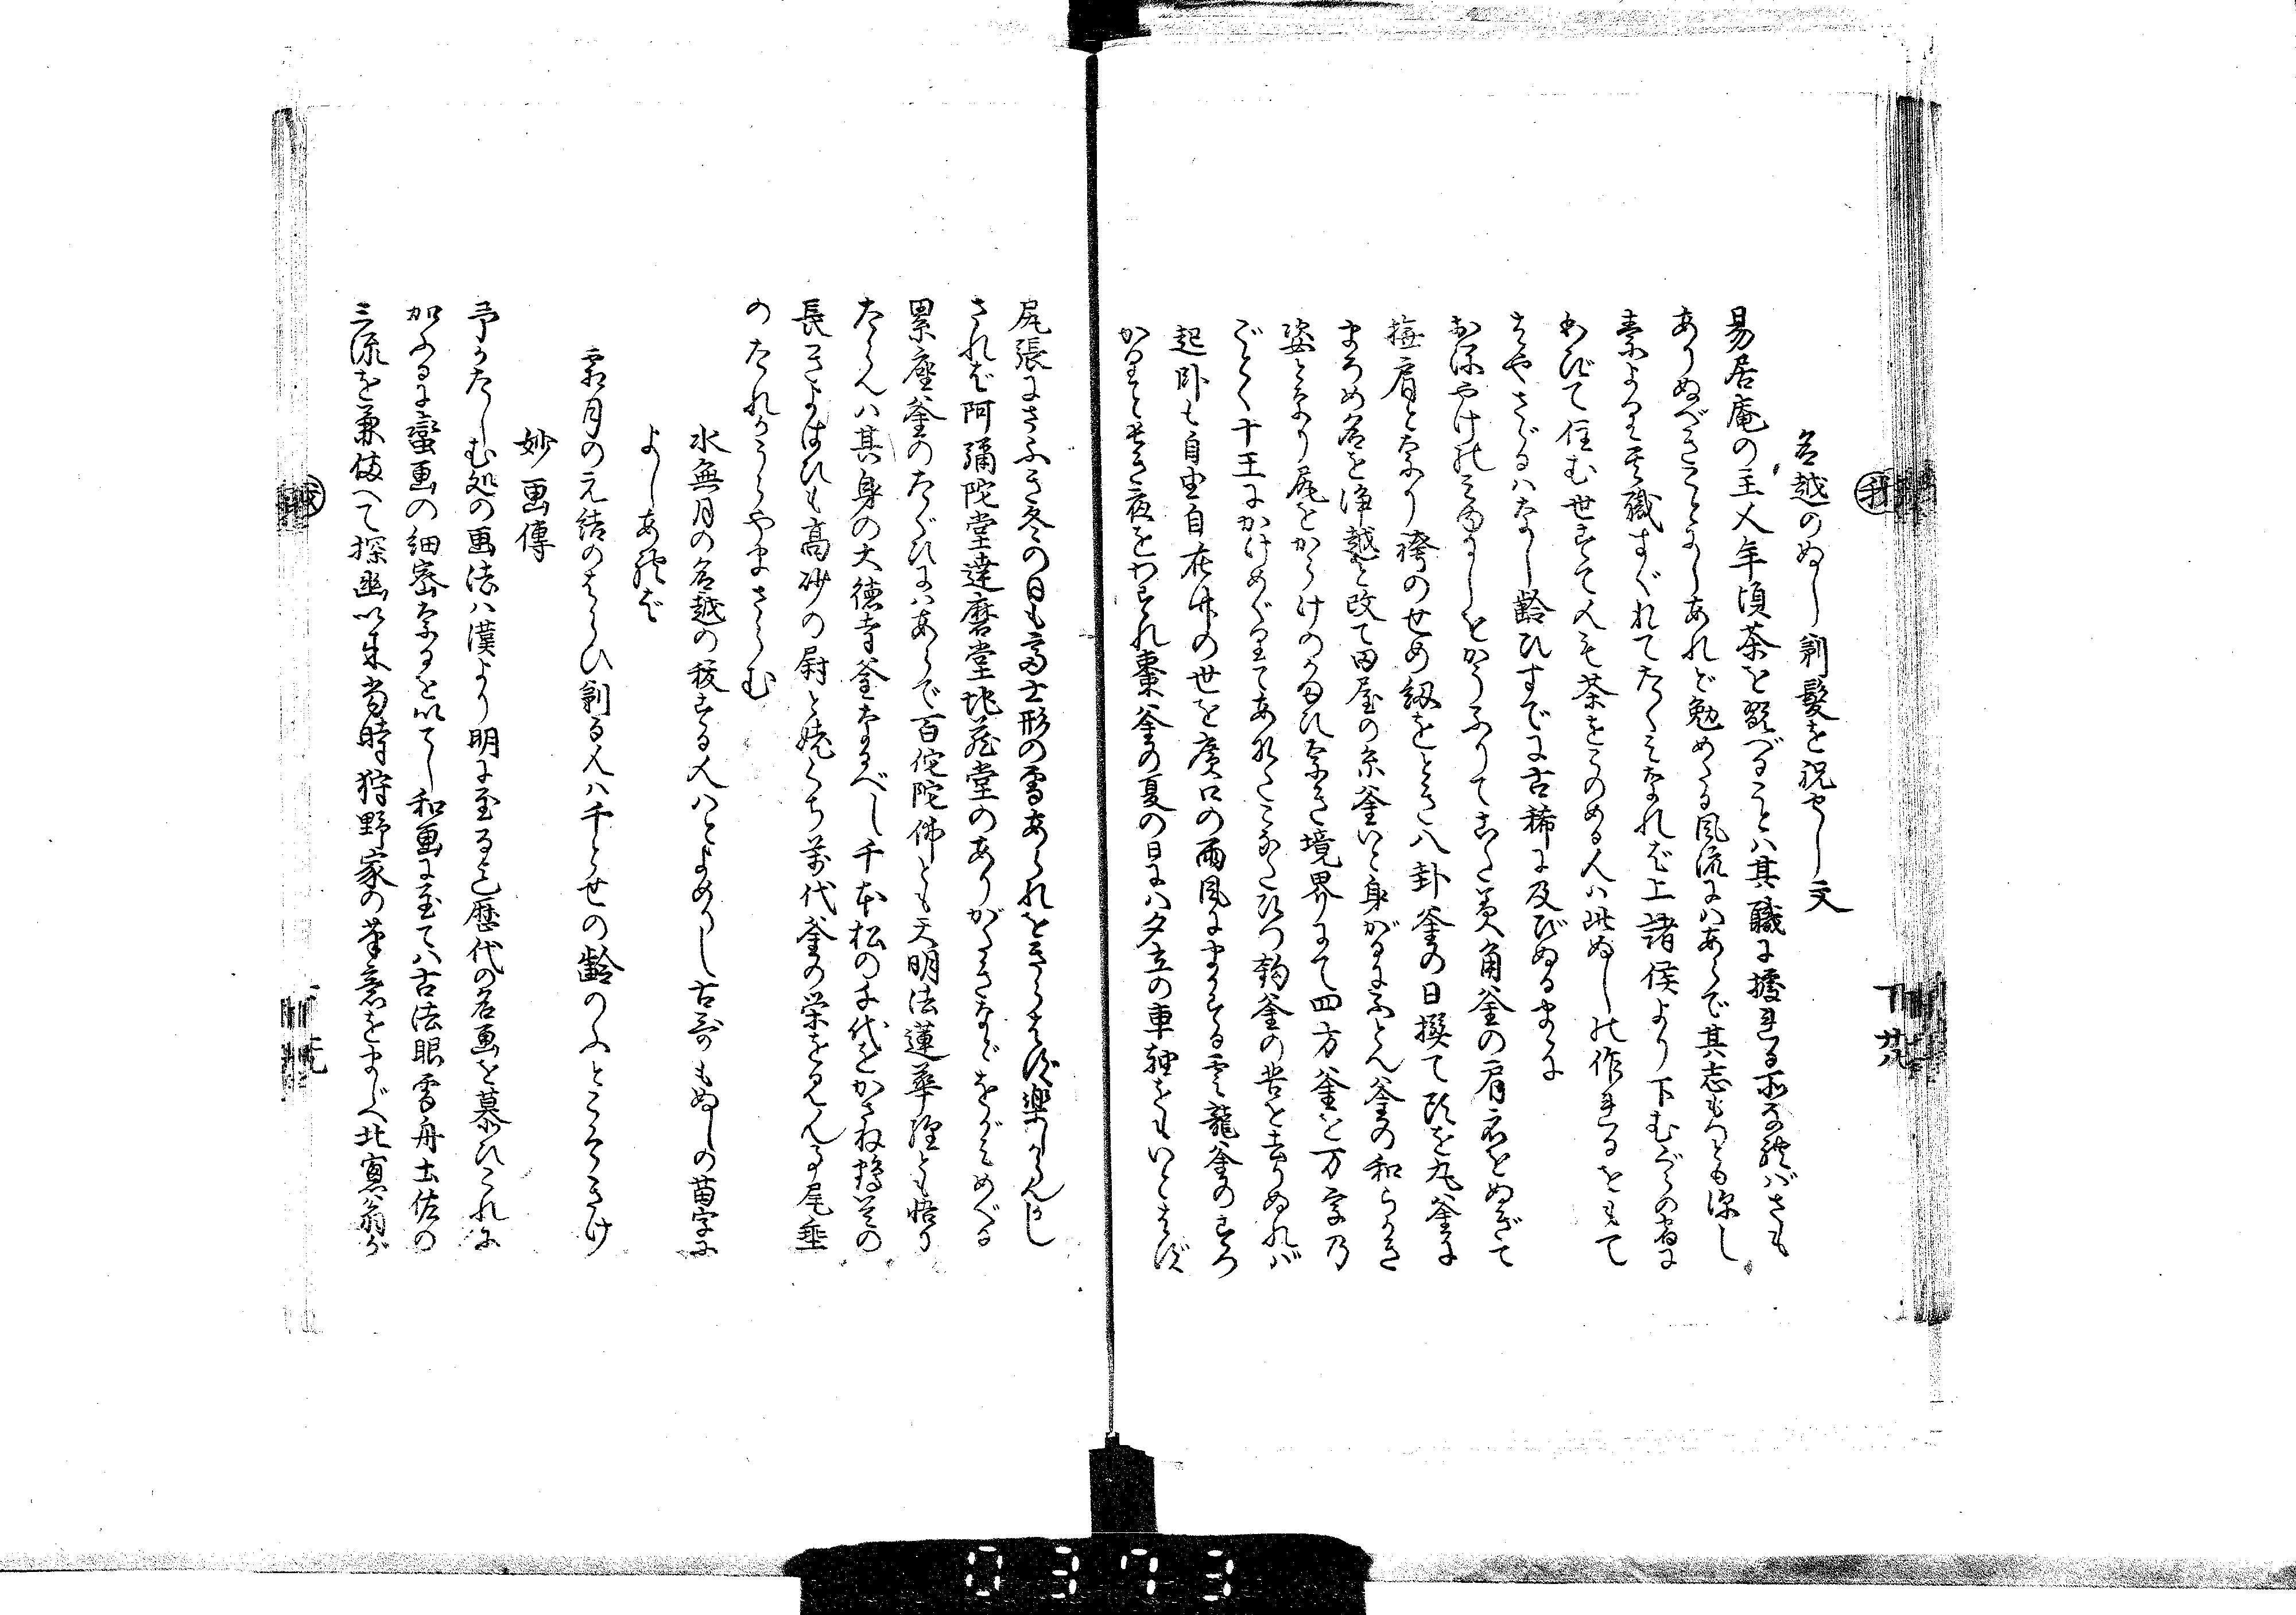 名越のぬし剃髪を祝せし文
易居庵の主人年頃茶を翫べることハ其職に據れる所なれバさも
ありぬべきことなしあれど勉めたる風流にハあらで其志もつとも深し
素より其職すぐれてたくみなれば上諸侯より下むぐらの宿に
わびて住む世すて人も茶をこのめる人ハ此ぬしの作れるをもて
はやさゞるハなし齢ひすでに古稀に及びぬるまゝに
おほやけのゆるしをかうふりてことし角釜の肩衣をぬぎて
撫肩となり袴のせめ紐をとき八卦釜の日撰て頭を丸釜に
まろめ名を浄越と改て田屋の糸釜いと身がるにふとん釜の和らかき
姿となり尻をからけのうれひなき境界にて四方釜を万字乃
ごとく十王にかけめぐりてあなたこなたひつ鈎釜の苦を去りぬれバ
起卧も自由自在竹の世を廣口の雨風にまかする雲龍釜のまろ
かりと長き夜をわすれ棗釜の夏の日にハ夕立の車軸をもいとはず
尻張にさふき冬の日も富士形の雪あられをきらはず楽しからんかし
されば阿彌陀堂達磨堂地蔵堂のありがたきなどをがみめぐる
累座釜のたぐひにハあらで百侘陀佛とも天明法蓮華経とも悟り
たらんハ其身の大徳寺釜なるべし千本松の千代をかさね鶴首の
長きよはひも高砂の尉と姥くち万代釜の栄をみん事尾垂
のたれかうらやまさらむ
水無月の名越の祓する人ハとよめりし古哥もぬしの苗字に
よしあれば
霜月の元結のはらひ剃る人ハ千とせの齢のふところさけ
妙画傳
予かたしむ処の画法ハ漢より明に至る迄歴代の名画を慕ひこれに
加ふるに蛮画の細密なるを以てし和画に至てハ古法眼雪舟土佐の
三流を兼備へて探幽以来當時狩野家の筆意をまじへ北寞翁が